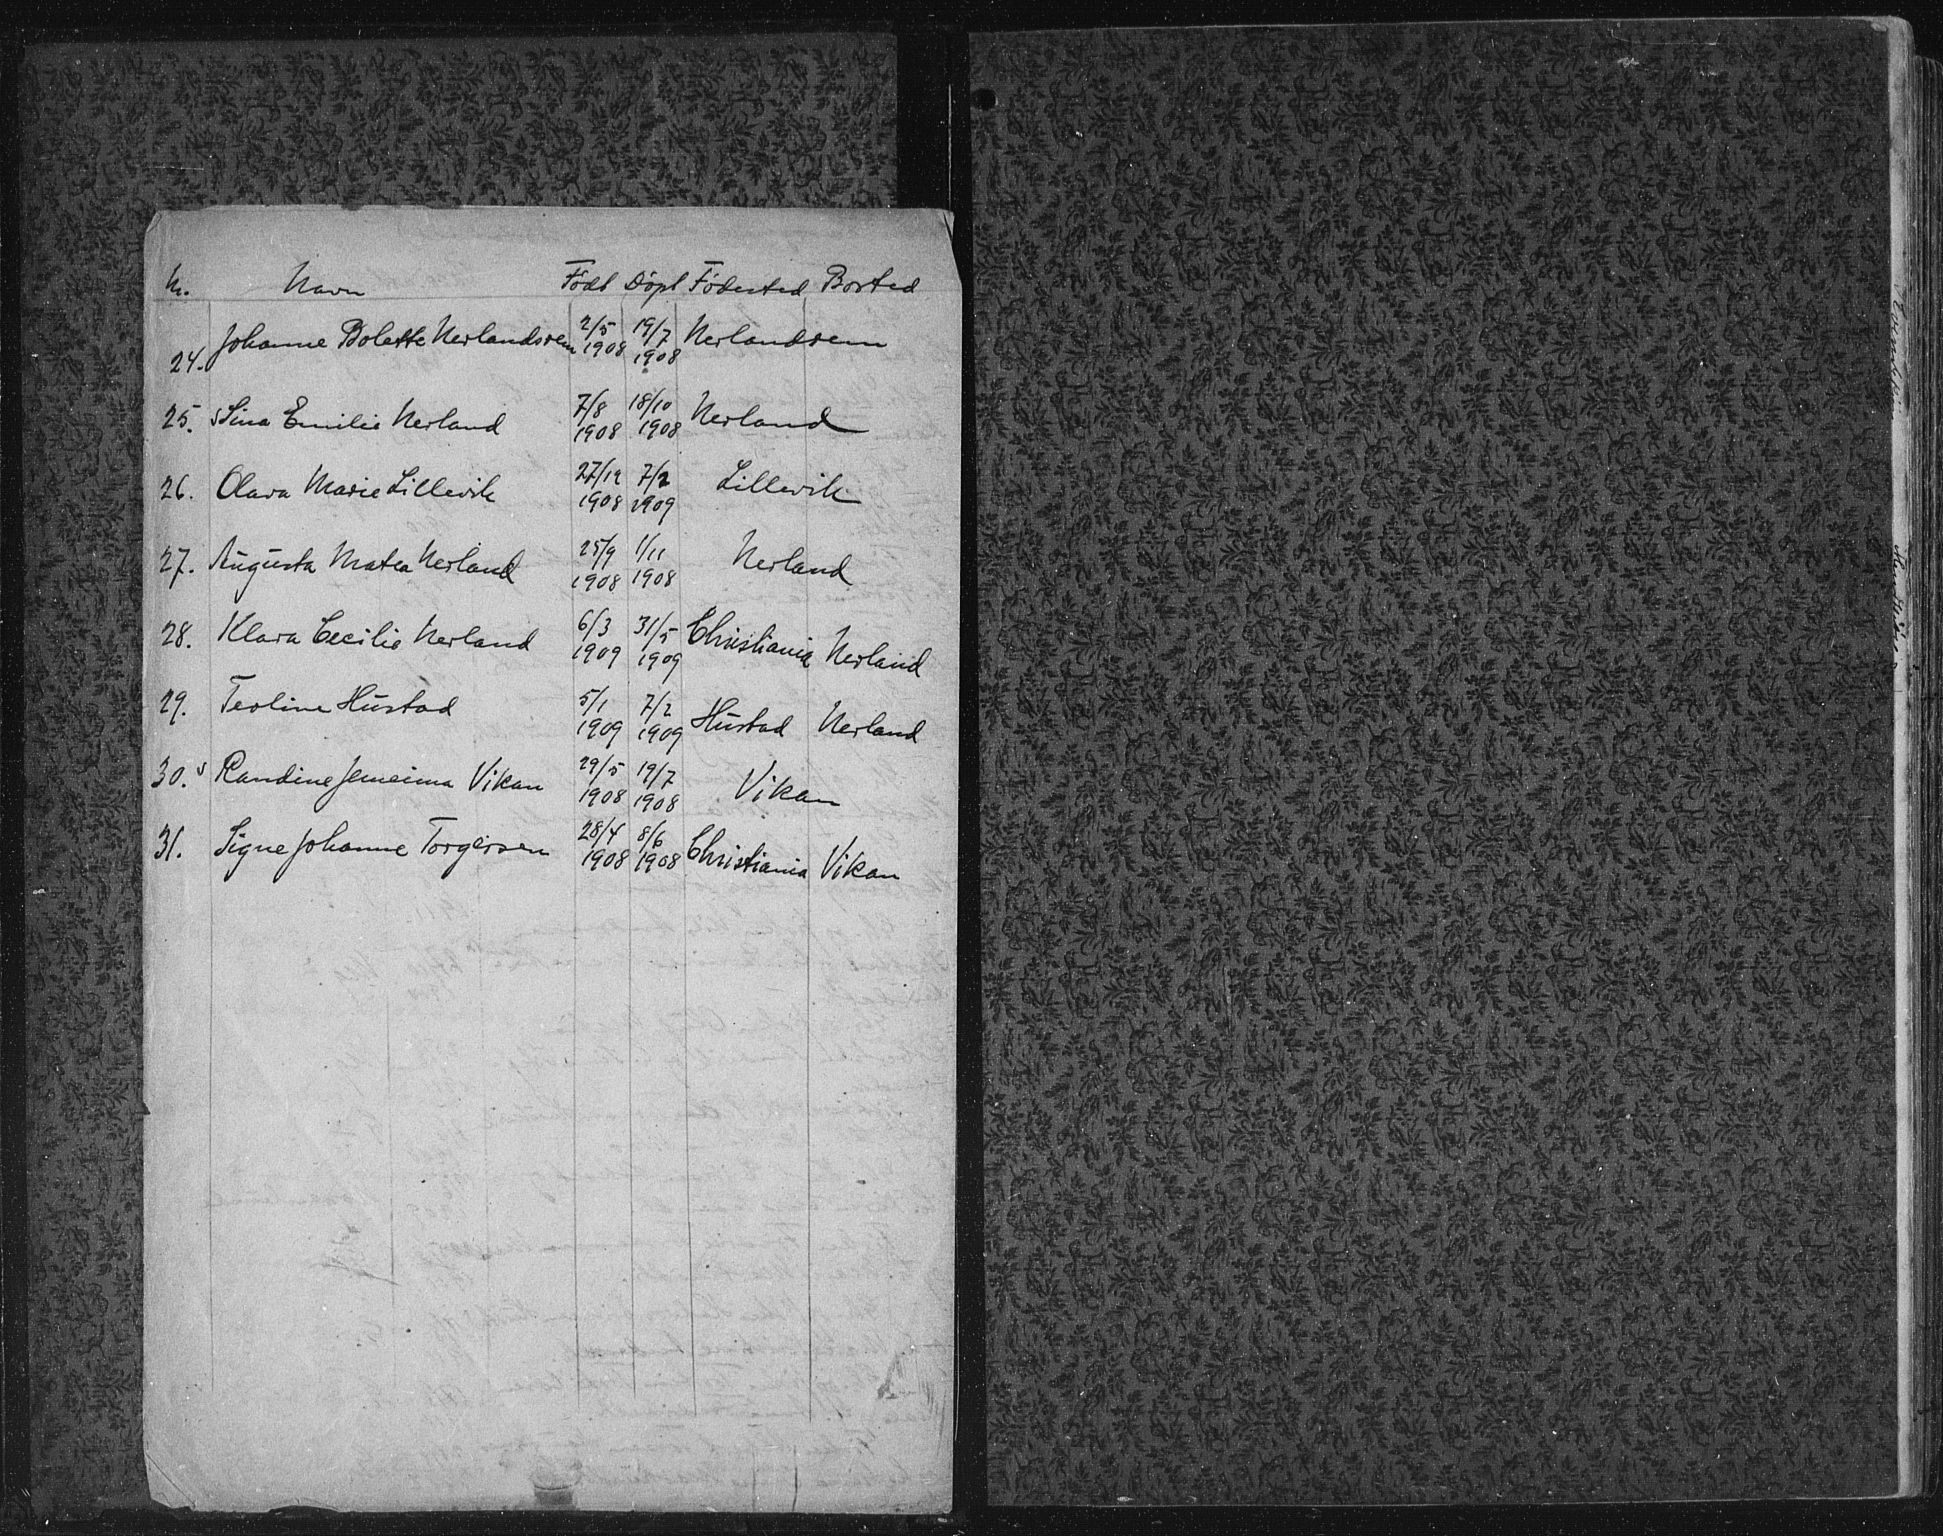 Nr. Navn Født Døpt Fødested Bosted
24. Johanne Bolette Nerlandsrem 2/5 1908 19/7 1908 Nerlandsrem
25. Sina Emilie Nerland 7/8 1908 18/10 1908 Nerland
26. Olava Marie Lillevik 27/12 1908 7/2 1909 Lillevik
27. Augusta Matea Nerland 25/9 1908 1/11 1908 Nerland
28. Klara Cecilie Nerland 6/3 1909 31/5 1909 Christiania Nerland
29. Teoline Hustad 5/1 1909 7/2 1909 Hustad Nerland
30. Randine Jemeima Vikan 29/5 1908 19/7 1908 Vikan
31. Signe Johanne Torgersen 28/4 1908 8/6 1908 Christiania Vikan